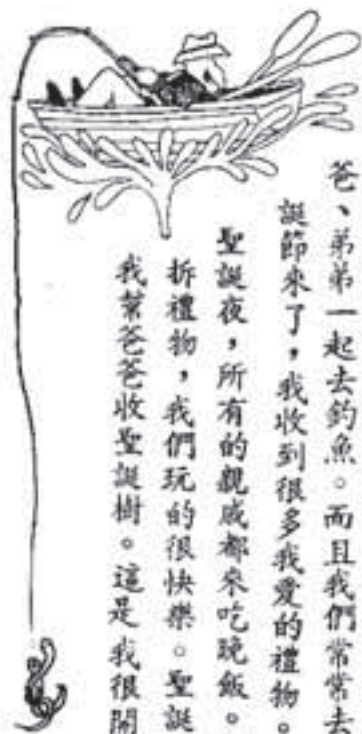 爸、弟弟一起去釣魚。而且我們常常去
誕節來了，我收到很多我愛的禮物。
聖誕夜，所有的親戚都來吃晚飯。
拆禮物，我們玩的很快樂。聖誕
我幫爸爸收聖誕樹。這是我很開